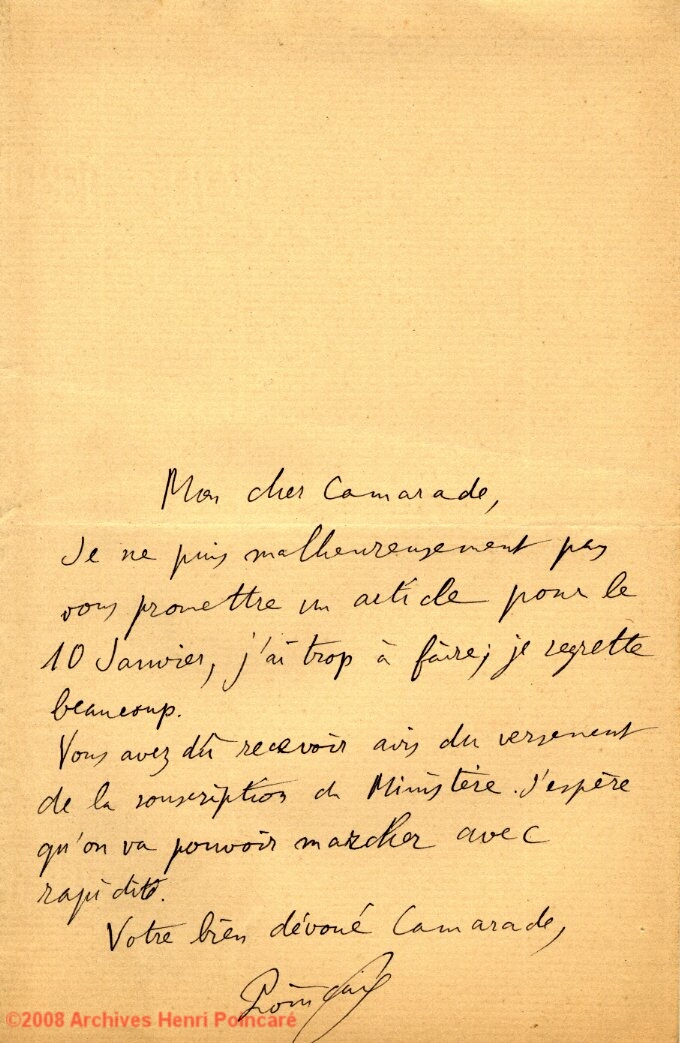 Mon cher Camarade,
Je ne puis malheureusement pas
vous promettre un article pour le
10 Janvier, j'ai trop à faire; je regrette
beaucoup.
Vous avez dû recevoir avis du versement
de la souscription du Ministère. J'espère
qu'on va pouvoir marcher avec
rapidité.
Votre bien dévoué Camarade,
Poincaré
©2008 Archives Henri Poincaré